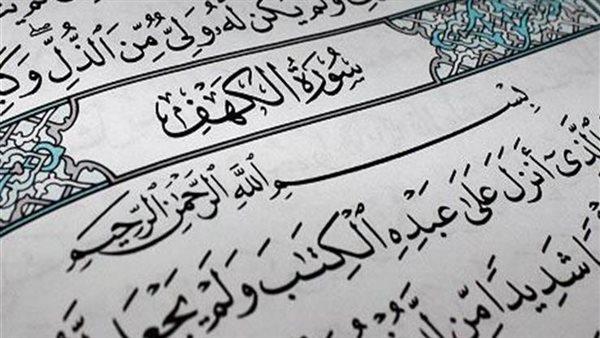 وَلَمْ يَكُن لَّهُۥ وَلِىٌّ مِّنَ ٱلذُّلِّ وَكَ
سُورَةُ الكَهْفِ
بِسْمِ ٱللَّهِ ٱلرَّحْمَٰنِ ٱلرَّحِيمِ
ٱلَّذِىٓ أَنزَلَ عَلَىٰ عَبْدِهِ ٱلْكِتَٰبَ وَلَمْ يَجْعَل
شَدِيدًا مِّن